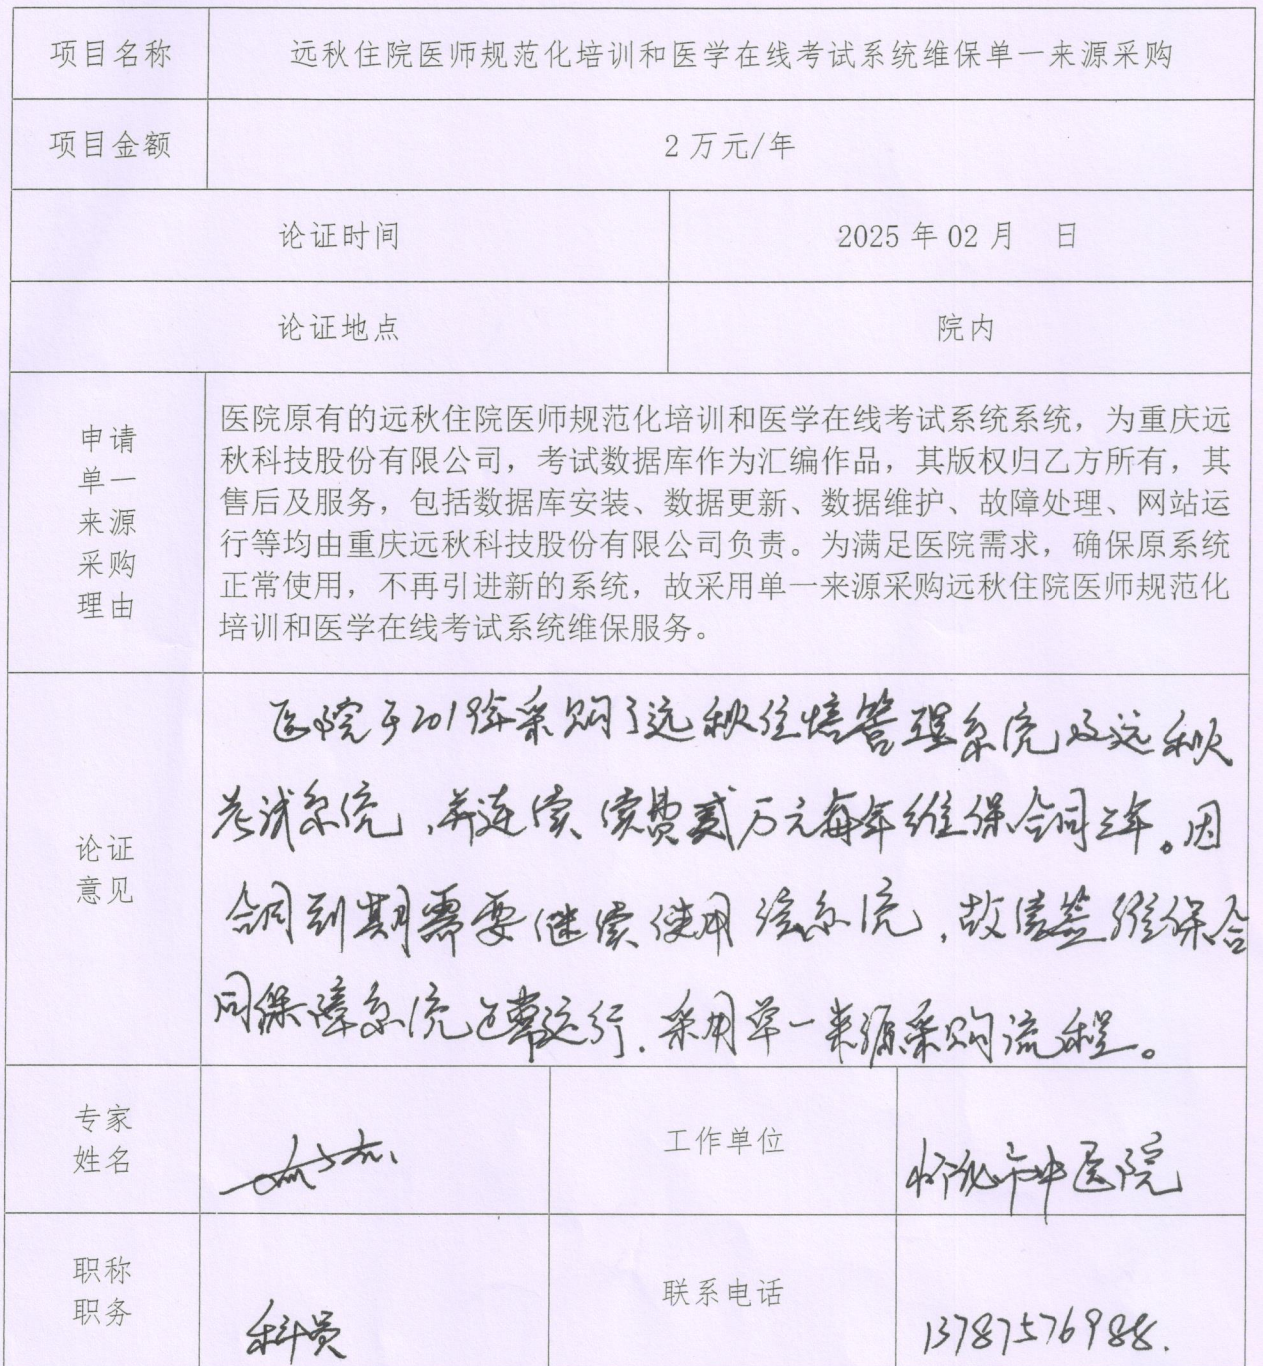 项目名称 远秋住院医师规范化培训和医学在线考试系统维保单一来源采购
项目金额 2万元/年
论证时间 2025年02月 日
论证地点 院内
申请
单一
来源
采购
理由
医院原有的远秋住院医师规范化培训和医学在线考试系统系统，为重庆远
秋科技股份有限公司，考试数据库作为汇编作品，其版权归乙方所有，其
售后及服务，包括数据库安装、数据更新、数据维护、故障处理、网站运
行等均由重庆远秋科技股份有限公司负责。为满足医院需求，确保原系统
正常使用，不再引进新的系统，故采用单一来源采购远秋住院医师规范化
培训和医学在线考试系统维保服务。
论证
意见
医院于2019年采购了远秋住培管理系统及远秋
考试系统，并连续续费贰万元每年维保合同三年。因
合同到期需要继续使用该系统，故续签维保合
同保障系统正常运行，采用单一来源采购流程。
专家
姓名
工作单位 怀化市中医院
职称
职务
科员
联系电话 13787576988.